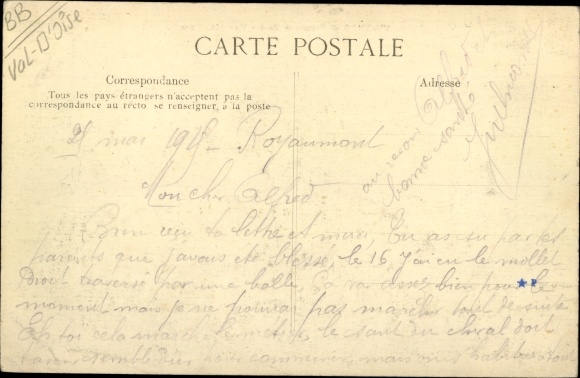 BB
VAL-D'OISE
CARTE POSTALE
Correspondance
Tous les pays étrangers n'acceptent pas la
correspondance au recto se renseigner, à la poste
Adresse
au revoir Alfred
bonne santé
mai Royaumont
Mon cher Alfred:
Bien reçu ta lettre et merci, tu as su par tes
parents que j'avais été blessé, le 16 j'ai eu le mollet
droit traversé par une balle, ça va assez bien pour le
moment mais je ne pourrai pas marcher tout de suite
Et toi cela marche le saut du cheval doit
mais